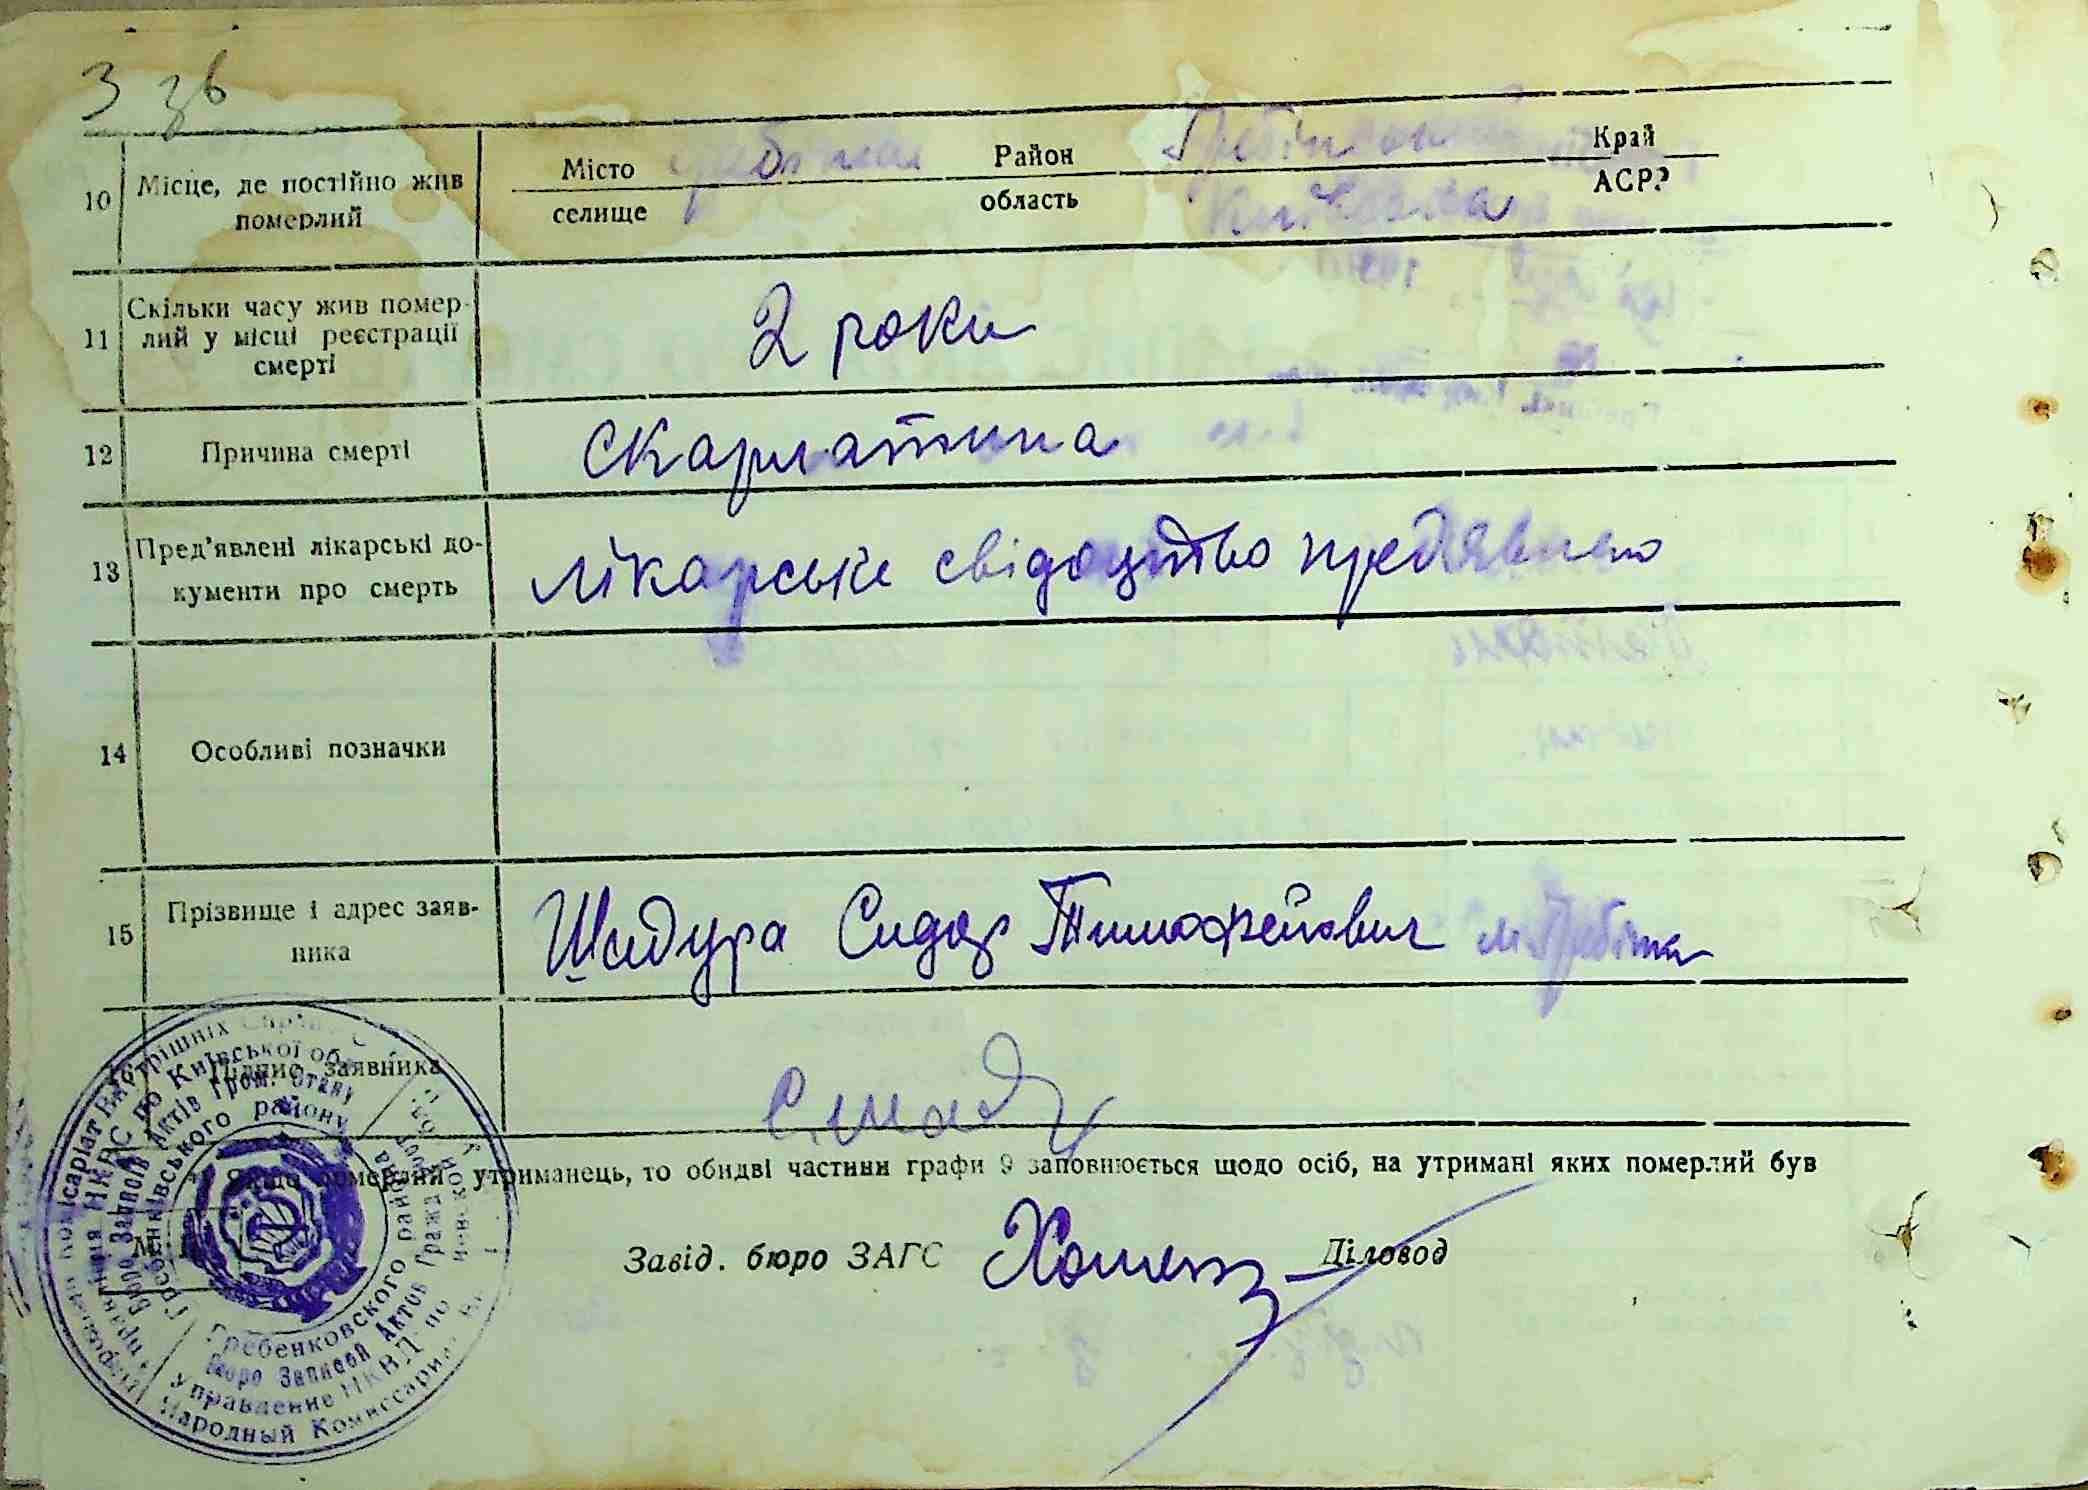 3 зв
10 Місце, де постійно жив померлий
Місто селище Гребінка Район область Гребінковський Київська Край АСРР
11 Скільки часу жив помер-
лий у місці реєстрації
смерті
2 роки
12 Причина смерті
Скарлатина
13 Пред'явлені лікарські до-
кументи про смерть
лікарське свідоцтво предявлено
14 Особливі позначки
15 Прізвище і адрес заяв-
ника
Шидура Сидор Тимофейович м. Гребінка
16 Підпис заявника
Якщо померлий утриманець, то обидві частини графи 9 заповнюється щодо осіб, на утримані яких померлий був
М. П.
Завід. бюро ЗАГС
Діловод
Народний Комісаріат Внутрішніх Справ
Управління НКВС по Київській обл.
Бюро Записів Актів Гром. Стану
Гребенківського району
Гребенковского района
Бюро Записей Актов Гражд.
Управление НКВД по
Народный Комиссариат